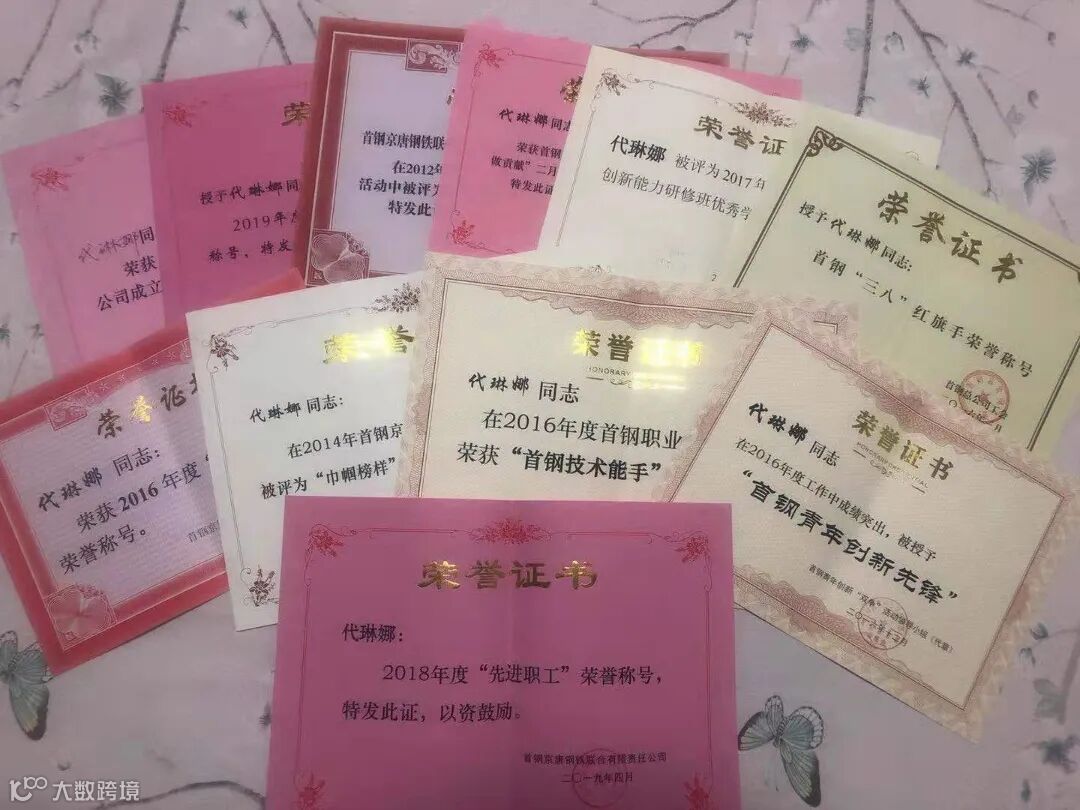 代琳娜同
荣获
公司成立
荣
授予代琳娜同志
2019年度
称号，特发
首钢京唐钢铁联
在2012年
活动中被评为
特发此证
荣
代琳娜同志
荣获首钢
做贡献”二月
特发此证
荣誉证
代琳娜 被评为2017年
创新能力研修班优秀学
荣誉证书
授予代琳娜同志：
首钢“三八”红旗手荣誉称号
首钢总公司工会
荣誉证书
代琳娜 同志：
荣获2016年度“
荣誉称号。
首钢京
荣誉
代琳娜 同志：
在2014年首钢京
被评为“巾帼榜样”
荣誉证书
HONORARY
代琳娜 同志
在2016年度首钢职业
荣获“首钢技术能手”
荣誉证书
代琳娜 同志
在2016年度工作中成绩突出，被授予
“首钢青年创新先锋”
首钢青年创新“双争”活动领导小组（代章）
二〇一六年十二月
荣誉证书
代琳娜：
2018年度“先进职工”荣誉称号，
特发此证，以资鼓励。
首钢京唐钢铁联合有限责任公司
二〇一九年四月
大数跨境